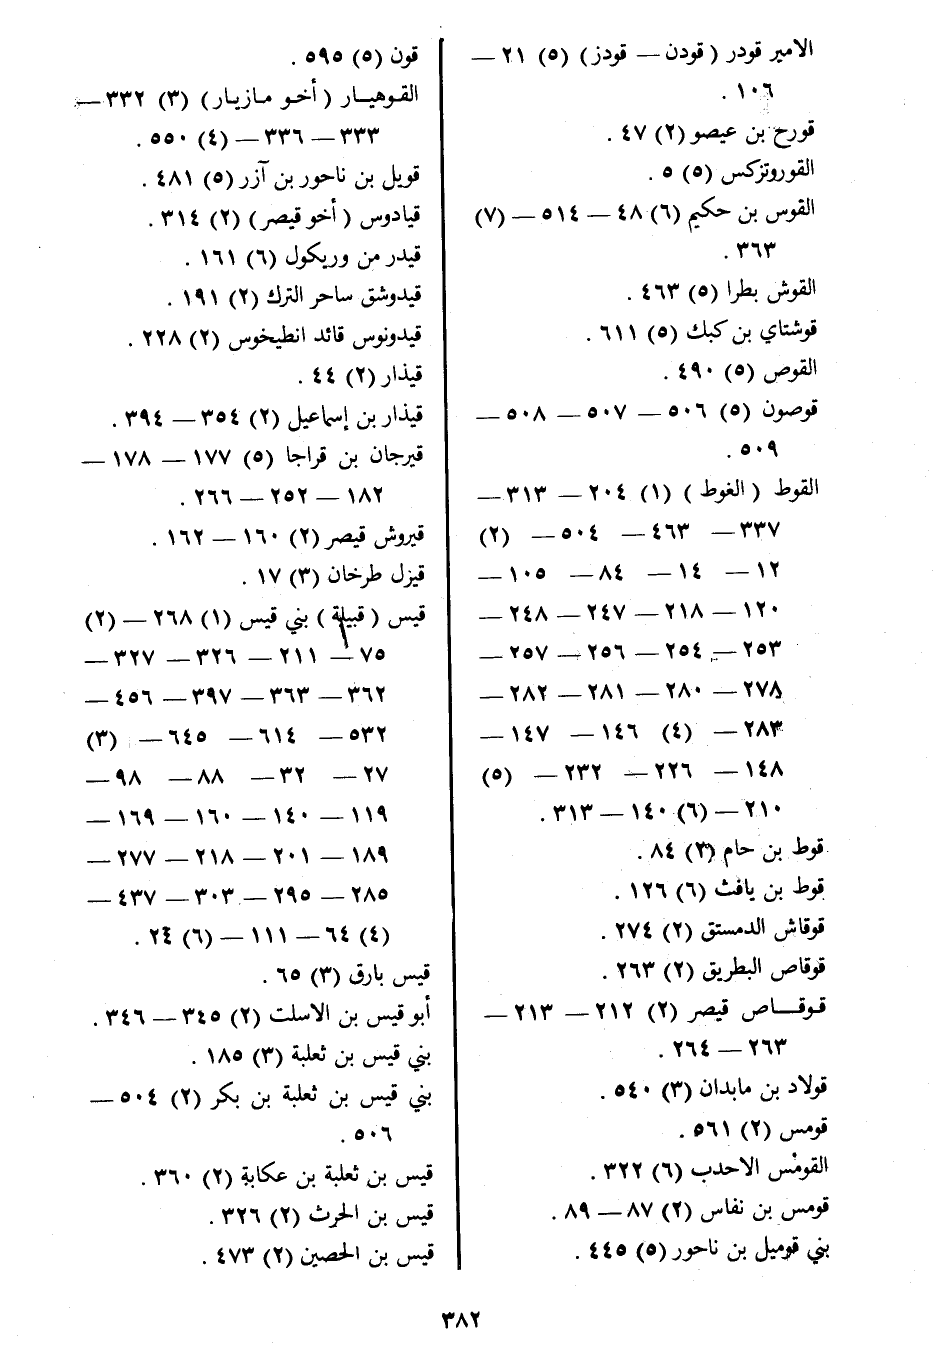 الامير قودر ( قودن — قودز ) (٥) ٢١ —
١٠٦ .
قورح بن عيصو (٢) ٤٧ .
القوروتزكس (٥) ٥ .
القوس بن حكيم (٦) ٤٨ — ٥١٤ — (٧)
٣٦٣ .
القوش بطرا (٥) ٤٦٣ .
قوشتاي بن كبك (٥) ٦١١ .
القوص (٥) ٤٩٠ .
قوصون (٥) ٥٠٦ — ٥٠٧ — ٥٠٨ —
٥٠٩ .
القوط ( الغوط ) (١) ٢٠٤ — ٣١٣ —
٣٣٧ — ٤٦٣ — ٥٠٤ — (٢)
١٢ — ١٤ — ٨٤ — ١٠٥ —
١٢٠ — ٢١٨ — ٢٤٧ — ٢٤٨ —
٢٥٣ — ٢٥٤ — ٢٥٦ — ٢٥٧ —
٢٧٨ — ٢٨٠ — ٢٨١ — ٢٨٢ —
٢٨٣ — (٤) ١٤٦ — ١٤٧ —
١٤٨ — ٢٢٦ — ٢٣٢ — (٥)
٢١٠ — (٦) ١٤٠ — ٣١٣ .
قوط بن حام (٣) ٨٤ .
قوط بن يافث (٦) ١٢٦ .
قوقاش الدمستق (٢) ٢٧٤ .
قوقاص البطريق (٢) ٢٦٣ .
قوقاص قيصر (٢) ٢١٢ — ٢١٣ —
٢٦٣ — ٢٦٤ .
قولاد بن مابدان (٣) ٥٤٠ .
قومس (٢) ٥٦١ .
القومس الاحدب (٦) ٣٢٢ .
قومس بن نفاس (٢) ٨٧ — ٨٩ .
بني قوميل بن ناحور (٥) ٤٤٥ .
قون (٥) ٥٩٥ .
القوهيار ( أخو مازيار ) (٣) ٣٣٢ —
٣٣٣ — ٣٣٦ — (٤) ٥٥٠ .
قويل بن ناحور بن آزر (٥) ٤٨١ .
قيادوس ( أخو قيصر ) (٢) ٣١٤ .
قيدر من وريكول (٦) ١٦١ .
قيدوشق ساحر الترك (٢) ١٩١ .
قيدونوس قائد انطيخوس (٢) ٢٢٨ .
قيذار (٢) ٤٤ .
قيذار بن إسماعيل (٢) ٣٥٤ — ٣٩٤ .
قيرجان بن قراجا (٥) ١٧٧ — ١٧٨ —
١٨٢ — ٢٥٢ — ٢٦٦ .
قيروش قيصر (٢) ١٦٠ — ١٦٢ .
قيزل طرخان (٣) ١٧ .
قيس ( قبيلة ) بني قيس (١) ٢٦٨ — (٢)
٧٥ — ٢١١ — ٣٢٦ — ٣٢٧ —
٣٦٢ — ٣٦٣ — ٣٩٧ — ٤٥٦ —
٥٣٢ — ٦١٤ — ٦٤٥ — (٣)
٢٧ — ٣٢ — ٨٨ — ٩٨ —
١١٩ — ١٤٠ — ١٦٠ — ١٦٩ —
١٨٩ — ٢٠١ — ٢١٨ — ٢٧٧ —
٢٨٥ — ٢٩٥ — ٣٠٣ — ٤٣٧ —
(٤) ٦٤ — ١١١ — (٦) ٢٤ .
قيس بارق (٣) ٦٥ .
أبو قيس بن الاسلت (٢) ٣٤٥ — ٣٤٦ .
بني قيس بن ثعلبة (٣) ١٨٥ .
بني قيس بن ثعلبة بن بكر (٢) ٥٠٤ —
٥٠٦ .
قيس بن ثعلبة بن عكابة (٢) ٣٦٠ .
قيس بن الحرث (٢) ٣٢٦ .
قيس بن الحصين (٢) ٤٧٣ .
٣٨٢